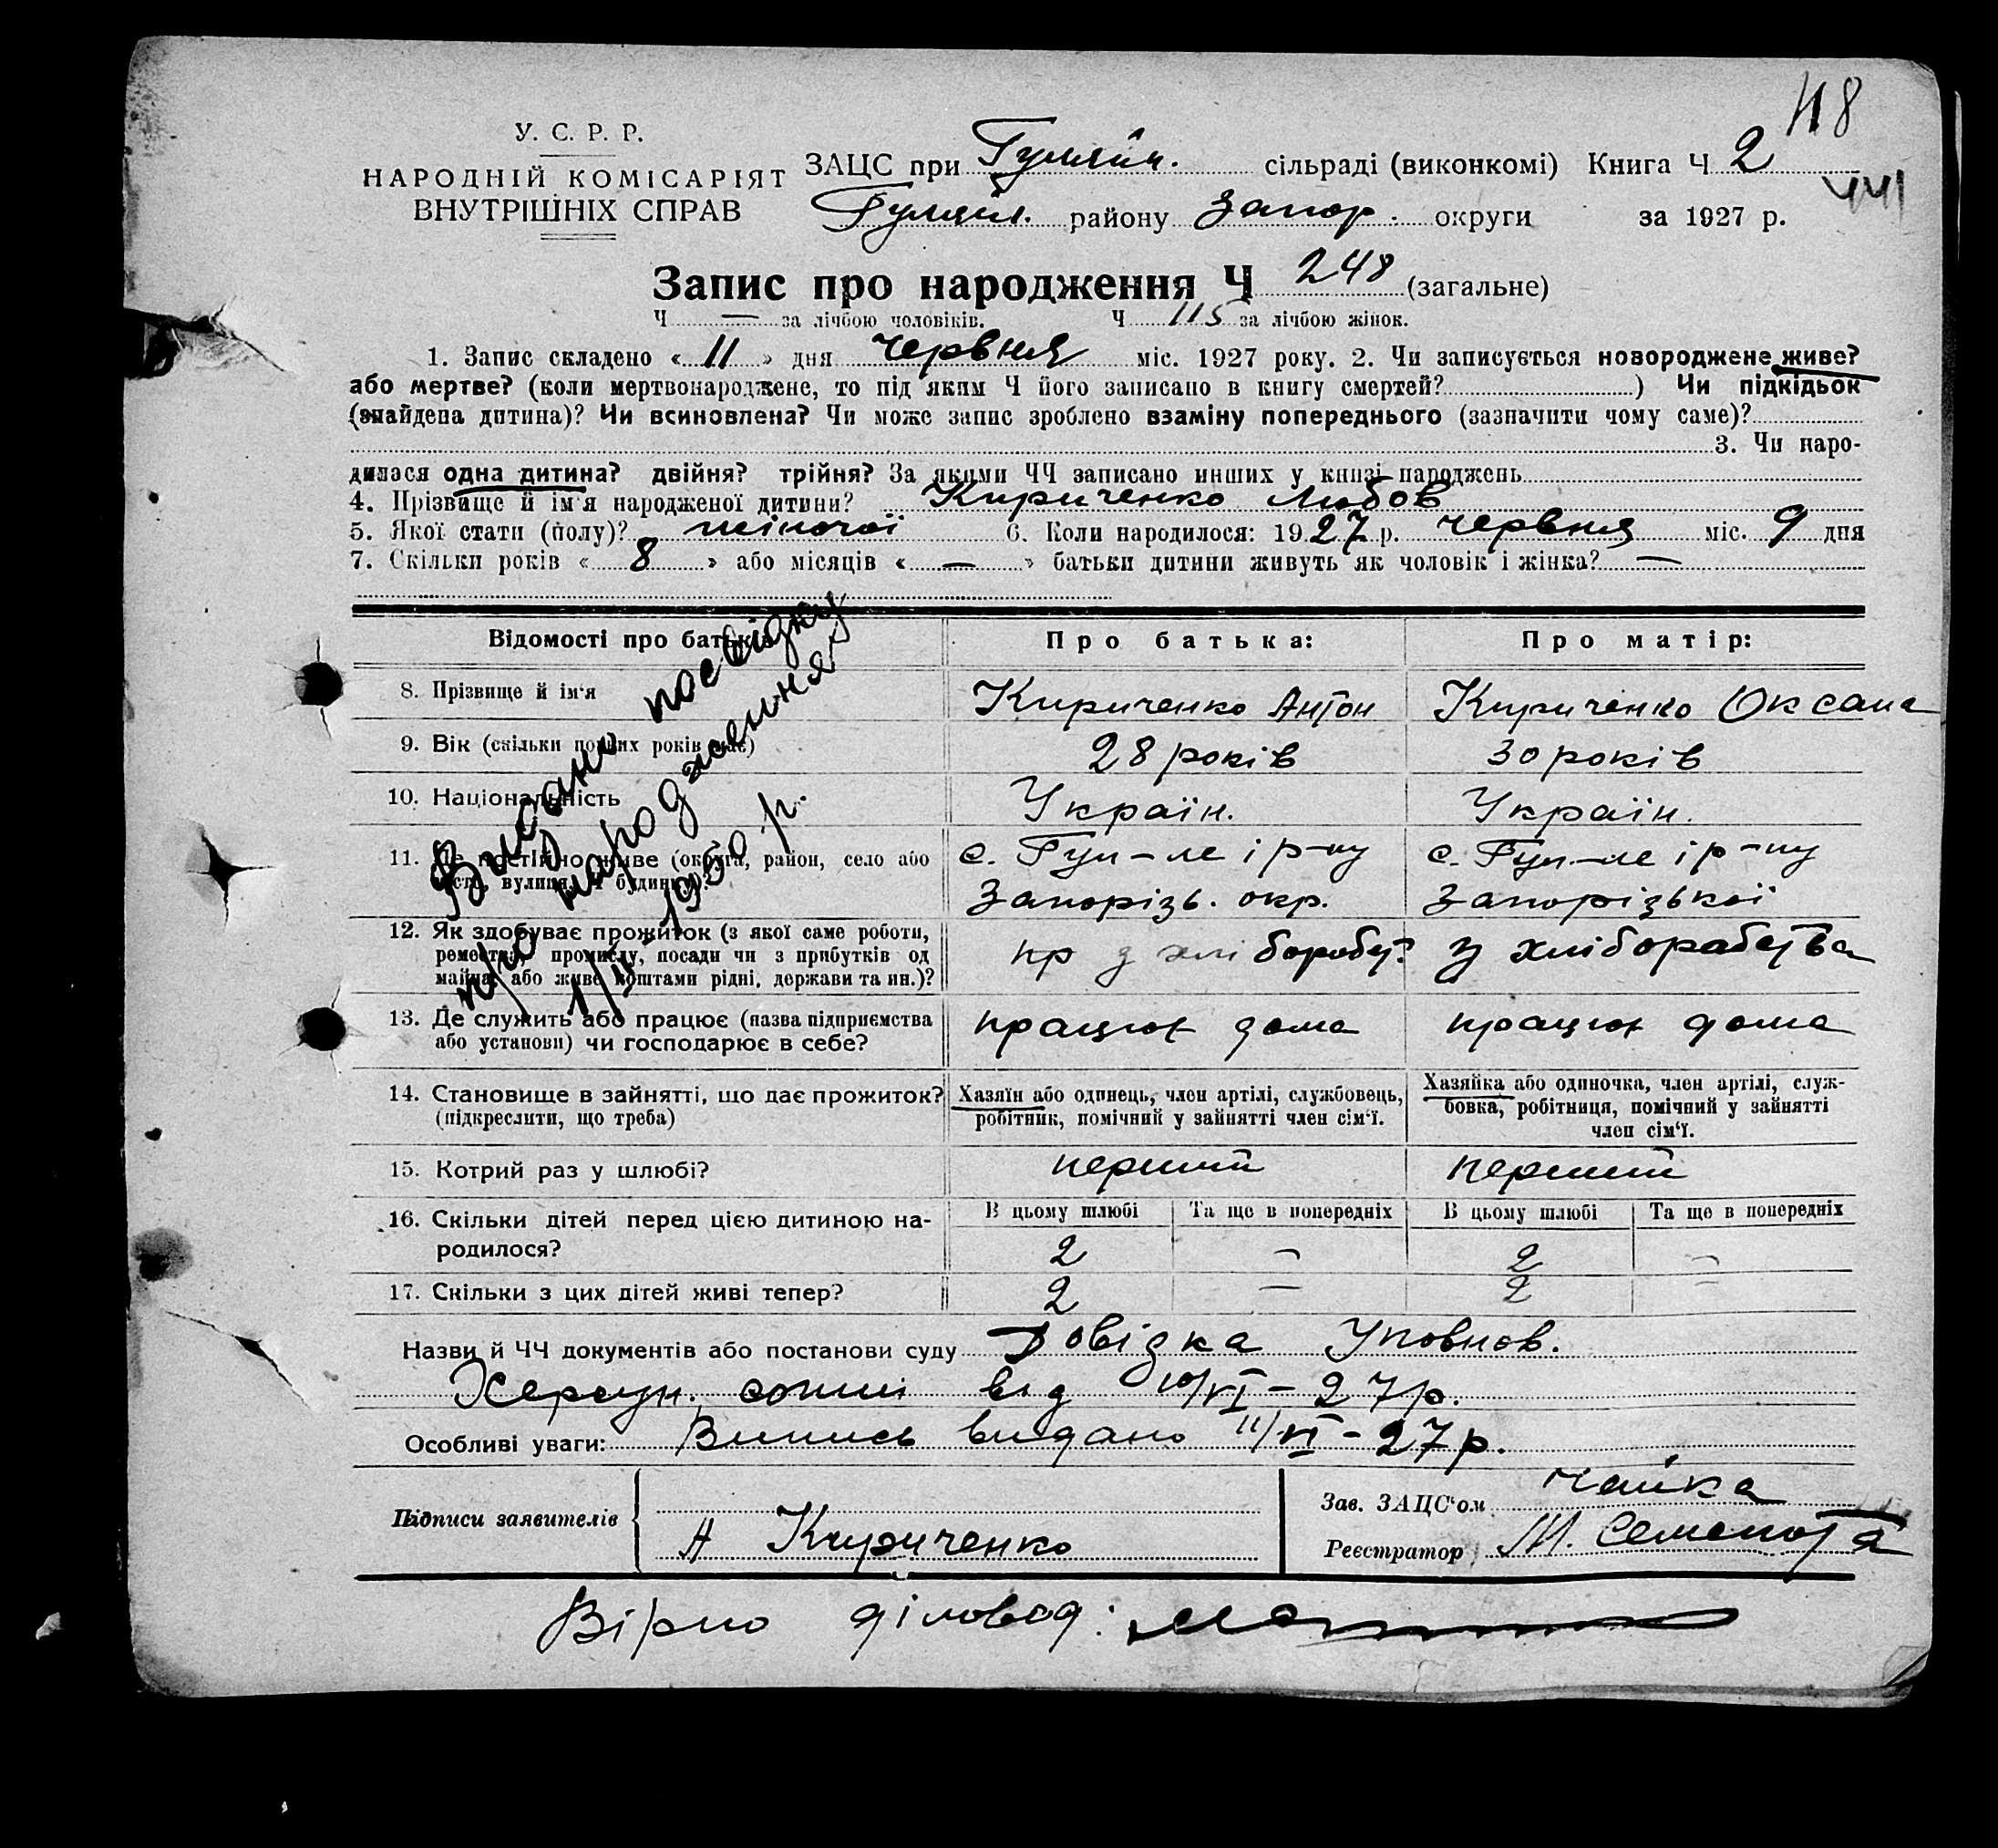 118
У. С. Р. Р.
НАРОДНІЙ КОМІСАРІЯТ
ВНУТРІШНІХ СПРАВ
ЗАЦС при Гуляйп. сільраді (виконкомі) Книга Ч 2
441
Гуляйп. району Запор. округи за 1927 р.
Запис про народження Ч 248 (загальне)
Ч — за лічбою чоловіків. Ч 115 за лічбою жінок.
1. Запис складено « 11 » дня червня міс. 1927 року. 2. Чи записується новороджене живе?
або мертве? (коли мертвонароджене, то під яким Ч його записано в книгу смертей? ) Чи підкідьок
(знайдена дитина)? Чи всиновлена? Чи може запис зроблено взаміну попереднього (зазначити чому саме)?
3. Чи наро-
дилася одна дитина? двійня? трійня? За якими ЧЧ записано инших у книзі народжень
4. Прізвище й ім'я народженої дитини? Кириченко Любов
5. Якої стати (полу)? жіночої 6. Коли народилося: 1927 р. червня міс. 9 дня
7. Скільки років « 8 » або місяців « — » батьки дитини живуть як чоловік і жінка? —
Відомості про батьків Про батька: Про матір:
8. Прізвище й ім'я Кириченко Антон Кириченко Оксана
9. Вік (скільки повних років має) 28 років 30 років
10. Національність Україн. Україн.
11. Де постійно живе (округа, район, село або с. Гул-ле і р-ну с. Гул-ле і р-ну
місто, вулиця, Ч будинку)? Запорізь. окр. Запорізької
12. Як здобуває прожиток (з якої саме роботи,
ремества, промислу, посади чи з прибутків од
майна, або живе коштами рідні, держави та ин.)? хлібороб з хліборабства
13. Де служить або працює (назва підприємства працює дома працює дома
або установи) чи господарює в себе?
14. Становище в зайнятті, що дає прожиток? Хазяїн або одинець, член артілі, службовець, Хазяйка або одиночка, член артілі, служ-
(підкреслити, що треба) робітник, помічний у зайнятті член сім'ї. бовка, робітниця, помічний у зайнятті
член сім'ї.
15. Котрий раз у шлюбі? перший перший
16. Скільки дітей перед цією дитиною на- В цьому шлюбі Та ще в попередніх В цьому шлюбі Та ще в попередніх
родилося? 2 — 2 —
17. Скільки з цих дітей живі тепер? 2 — 2 —
Видано посвідку
п/ро народження
1950 р.
Назви й ЧЧ документів або постанови суду Довідка Уповнов.
Херсун. сотні від 10/VI - 27 р.
Особливі уваги: Випись видано 11/VI - 27 р.
Підписи заявителів А Кириченко
Зав. ЗАЦС'ом Чайка
Реєстратор М. Семенота
Вірно діловод: